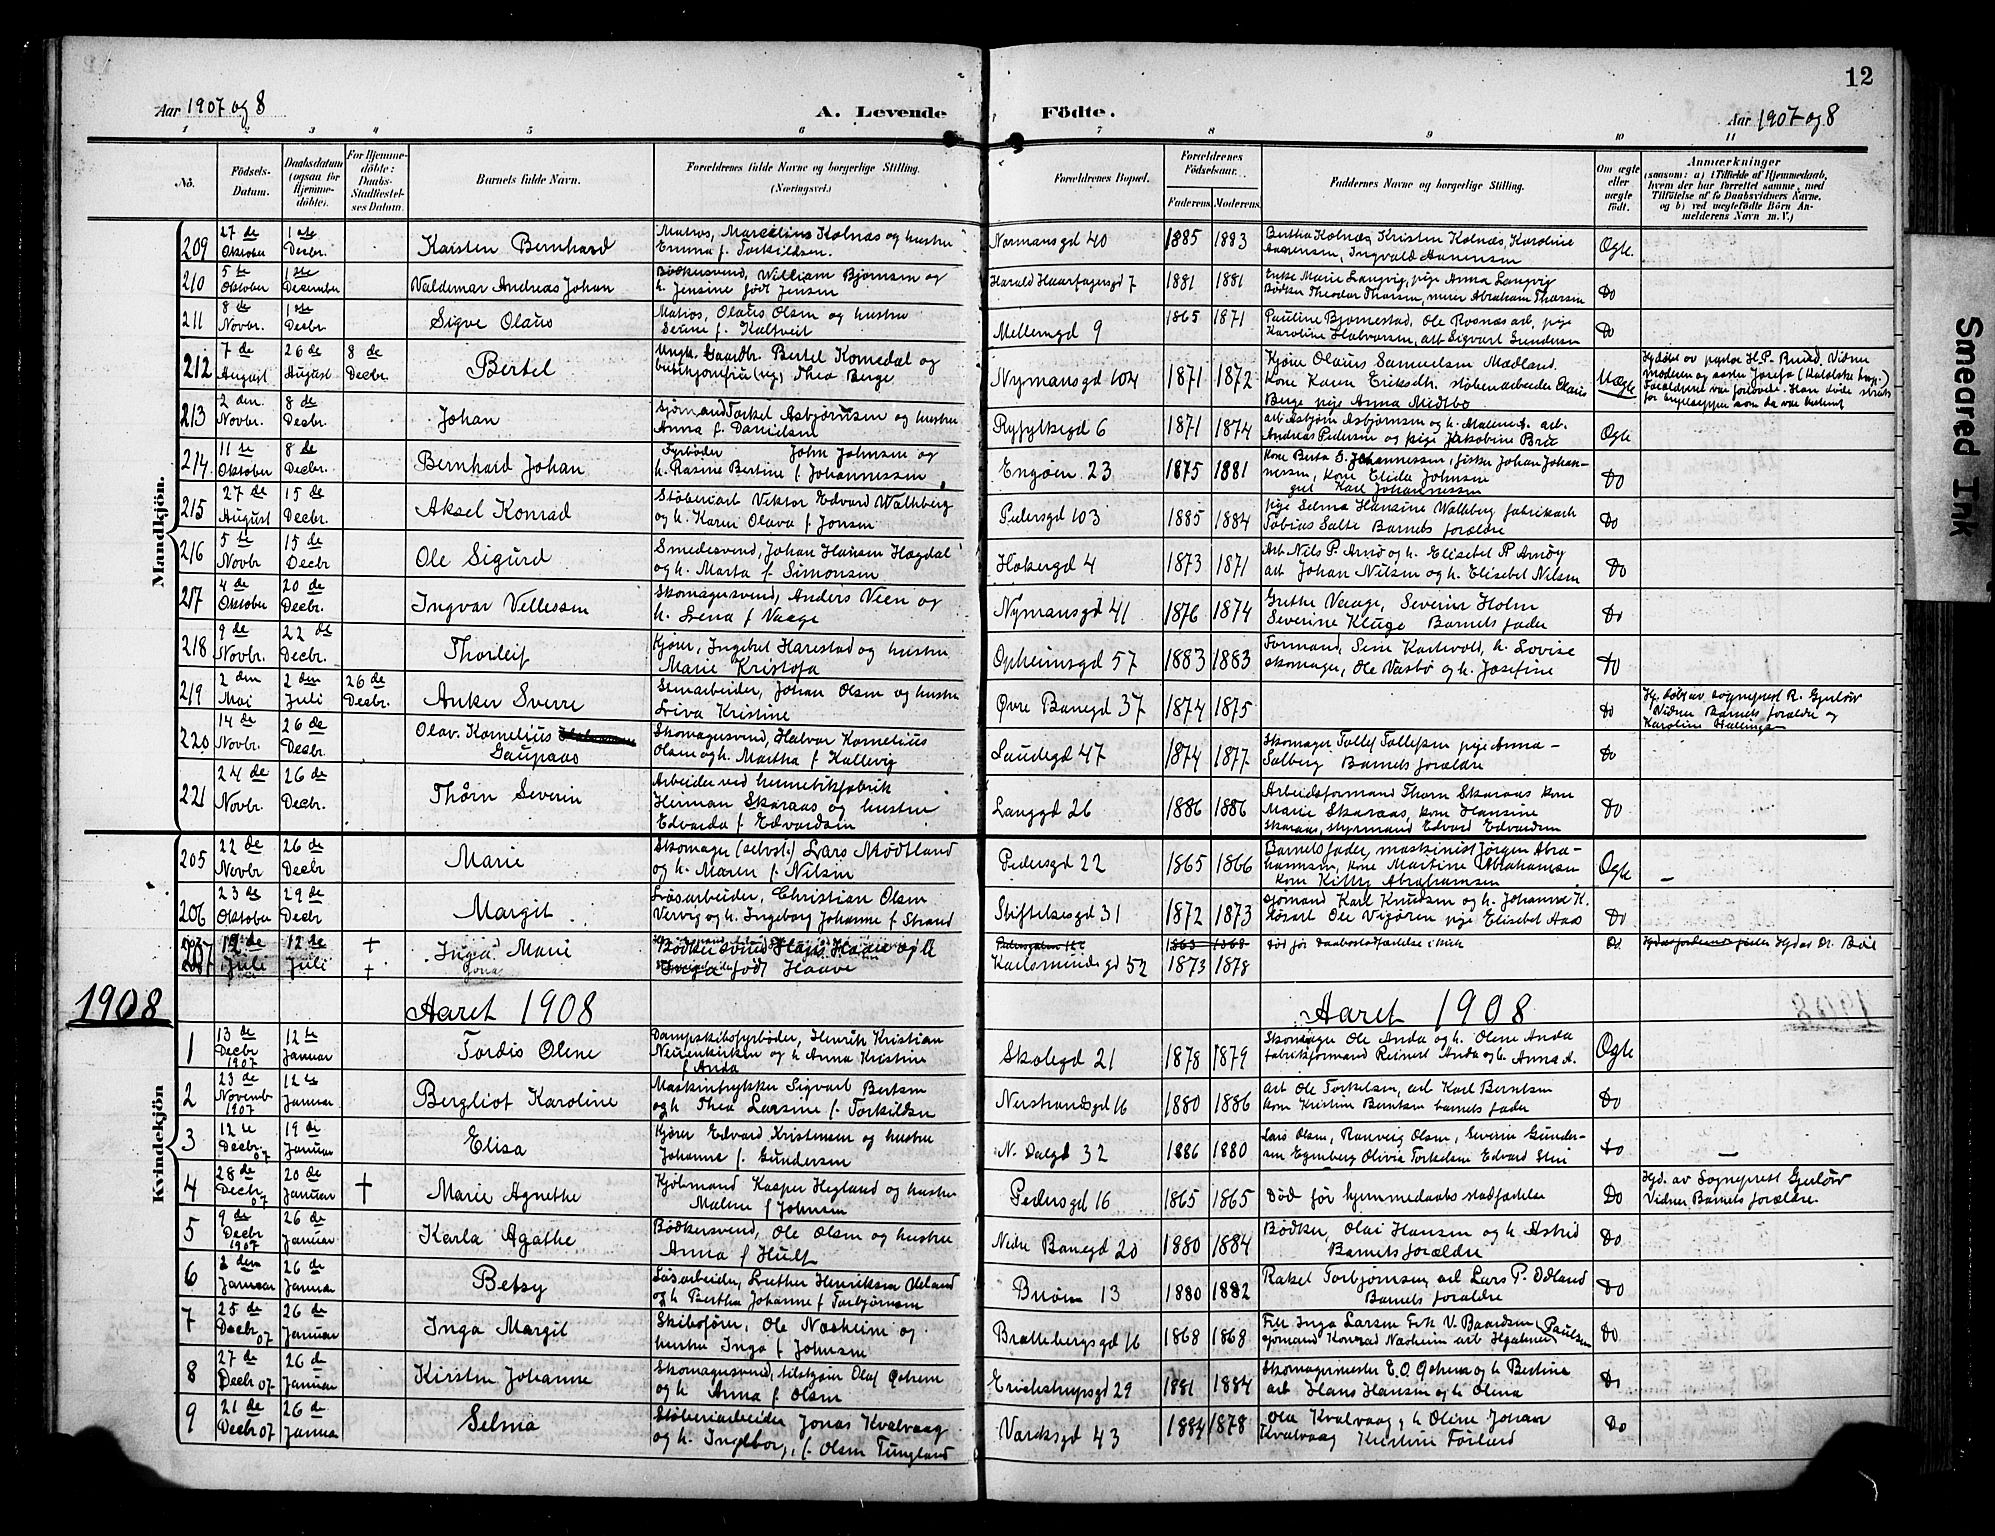 12
Aar 1907 og 8
A. Levende Födte.
Aar 1907 og 8
1 2 3 4 5 6 7 8 9 10 11
No. Födsels-Datum. Daabsdatum (ogsaa for Hjemmedöbte). For Hjemmedöbte: Daabs-Stadfæstelses Datum. Barnets fulde Navn. Forældrenes fulde Navne og borgerlige Stilling. (Næringsvei.) Forældrenes Bopæl. Forældrenes Födselsaar. Faderens. Moderens. Faddernes Navne og borgerlige Stilling. Om ægte eller uægte födt. Anmærkninger
(saasom: a) i Tilfælde af Hjemmedaab, hvem der har forrettet samme, med Tilföielse af to Daabsvidners Navne, og b) ved uægtefödte Börn Anmelderens Navn m. V.)
Mandkjön.
209 27de Oktober 1ste Decbr. Karsten Bernhard Matros, Marcelius Kolnas og hustru Normansgd 40 1885 1883 Bertha Kolnæs, Kristen Kolnæs, Karoline Ægte.
Emma f. Torkildsen. Aanensen, Ingvald Aanensen
210 5te Oktober 1ste December Valdemar Andreas Johan Bødkersvend, William Bjørnsen og Harald Haarfagersgd 7 1881 1881 Enke Marie Langvig, pige Anna Langvig Do
h. Jensine født Jensen Bødker Theodor Thorsen, murer Abraham Thorsen
211 8de Novbr. 1ste Decbr. Sigve Olaus Matros, Olaus Olsen og hustru Mellemgd 9 1865 1871 Pauline Bjørnestad, Ole Rosnæs arb, pige Do
f. Kaltveit Karoline Halvorsen, arb Sigvart Gundersen
212 7de August 26de August 8de Decbr. Bertel Ungk. Gaardbr. Bertel Komsdal og Nymansgd 104 1871 1872 Kjører Olaus Samuelsen Mædland Uægte
Thea Berge Kone Karen Eriksdtr. støberiarbeider Olaus
Berge pige Anna Midtbø
213 2den Novbr. 8de Decbr. Johan Sjømand Torkel Asbjørnsen og hustru Ryfylkegd 6 1871 1874 arb Asbjørn Asbjørnsen og h. Malene A. arb. Ægte
Anna f. Danielsen Andreas Pedersen og pige Jakobine Brie
214 11te Oktober 8de Decbr. Bernhard Johan Fyrbøder John Johnsen og Engøen 23 1875 1881 Kone Berta E. Johannessen, fisker Johan Johan- Do
h. Rasine Bertine f. Johannessen nessen, kone Elida Johnsen
Karl Johannessen
215 27de August 15de Decbr. Aksel Konrad Støberiarb Viktor Edvard Wallberg Pedersgd 103 1885 1884 pige Selma Hansine Walleberg fabrikarb Do
og h. Karen Olava f. Jonsen Tobias Salte Barnets forældre
216 5te Novbr 15de Decbr Ole Sigurd Smedesvend, Johan Hansen Høgdal Høkergd 4 1873 1871 Arb Nils P. Arnø og h. Elisabet P Arnøy Do
og h. Marta f. Simonsen arb Johan Nilsen og h. Elisebet Nilsen
217 4de Oktober 20de Decbr. Ingvar Vellessen Skomagersvend, Anders Veen og Nymansgd 41 1876 1874 Grethe Vaage, Severin Holm Do
h. Lena f Vaage Severine Kluge Barnets fader
218 9de Novbr. 22de Decbr. Thorleif Kjører, Ingebret Harestad og hustru Opheimsgd 57 1883 1883 Formand, Sem Kartevold, h. Lovise Do
Marie Kristofa skomager, Ole Vasbø og h. Josefine
219 2den Mai 2den Juli 26de Decbr. Anker Sverre Stenarbeider, Johan Olsen og hustru Øvre Banegd 37 1874 1875 Do Hj. døbt av sogneprest R. Gjerløv
Lriva Kristine Vidner Barnets forældre og
Karoline Hallingø
220 14de Novbr. 26de Decbr. Olav. Kornelius Skomagersvend, Halvor Kornelius Saudegd 47 1874 1877 Skomager Tollef Tollefsen pige Anna Do
Gaupaas Olsen og h. Martha f Kallevig Solberg Barnets forældre
221 24de Novbr. 26de Decbr. Thorn Severin Arbeider ved hermetikfabrik Langgd 26 1886 1886 Arbeidsformand Thorn Skaraas kone Do
Herman Skaraas og hustru Marie Skaraas, kone Hansine
Edvarda f. Edvardsen Skaraas, styrmand Edvard Edvardsen
Kvindekjön
205 22de Novbr 26de Decbr Marie Skomager (selvst.) Lars Mødtland Pedersgd 22 1865 1866 Barnets fader, maskinist Jørgen Abra- Ægte
og h. Maren f. Nilsen hamsen, kone Martine Abrahamsen
kone Kitty Abrahamsen
206 23de Oktober 29de Decbr Margit Løsarbeider, Christian Olsen Stiftelsesgd 31 1872 1873 Sjømand Karl Knudsen og h. Johanne K. Do
Vervig og h. Ingeborg Johanne f Strand Løsarb Ole Vigøren pige Elisebet Aas
207 12de Juli 12de Juli † Inga Marie Bødkersvend Hans Haave og h 1863 1868 død før daabsstadfæstelse i kirke
født Haave Karlsmindegd 52 1873 1878
1908
Aaret 1908 Aaret 1908
1 13de Decbr 1907 12te Januar Tordis Olene Dampskibsfyrbøder, Henrik Kristian Skolegd 21 1878 1879 Skomager Ole Anda og h. Olene Anda Ægte
Neuenkirken og h Anna Kristine fabrikformand Reinert Anda og h. Anna A.
f Anda
2 23de Novemb 1907 12te Januar Bergliot Karoline Maskintrykker Sigvart Berntsen Nerstrandsgd 16 1880 1886 arb Ole Torkelsen, arb Karl Berntsen Do
og h Thea Larsine f. Torkildsen kone Kristine Berntsen barnets fader
3 12te Decbr 07 19de Januar Elisa Kjører Edvard Kristensen og hustru N. Dalgd 32 1886 1880 Lars Olsen, Ranveig Olsen, Severin Gunder- Do
Johanne f. Gundersen sen Egenberg Olivia Torkelsen Edvard Stui
4 28de Decbr 07 20de Januar † Marie Agnethe Kjøbmand Kasper Hegland og hustru Pedersgd 16 1865 1865 Død før hjemmedaabs stadfæstelse Do Hjd. av Sogneprest Gjerløv
Malene f Johnsen Vidner Barnets forældre
5 9de Decbr 1907 26de Januar Karla Agathe Bødkersvend, Ole Olsen og hustru Nedre Banegd 20 1880 1884 Bødker, Olai Hansen og h Astrid Do
Anna f Hult Barnets forældre
6 2den Januar 26de Januar Betsy Løsarbeider, Luther Henriksen Ueland Brøen 13 1880 1882 Rakel Torbjørnsen, arb Lars P. Odland Do
og h Bertha Johanne f Torbjørnsen Barnets forældre
7 25de Decbr 07 26de Januar Inga Margit Skibsfører, Ole Næsheim og Brattebergsgd 16 1868 1868 Frk Inga Larsen Frk V. Baardsen Do
hustru Inga f Johnsen sjømand Konrad Næsheim arb Hjalmer Paulsen
8 27de Decbr 07 26de Januar Kirsten Johanne Skomagersvend, tilskjærer Olaf Qohem Erichstrupsgd 29 1881 1884 Skomagermester E.O. Qohem og h Bertine Do
og h Anna f Olsen arb Hans Hansen og h. Olena
9 21de Decbr 07 26de Janua Selma Støberiarbeider Jonas Kvalvaag Varisgd 43 1884 1878 Ola Kvalvaag, h Oline Johan Do
og h. Ingeborg, f. Olsen Tungland Kvalvaag Kristine Førland
Smeared Ink